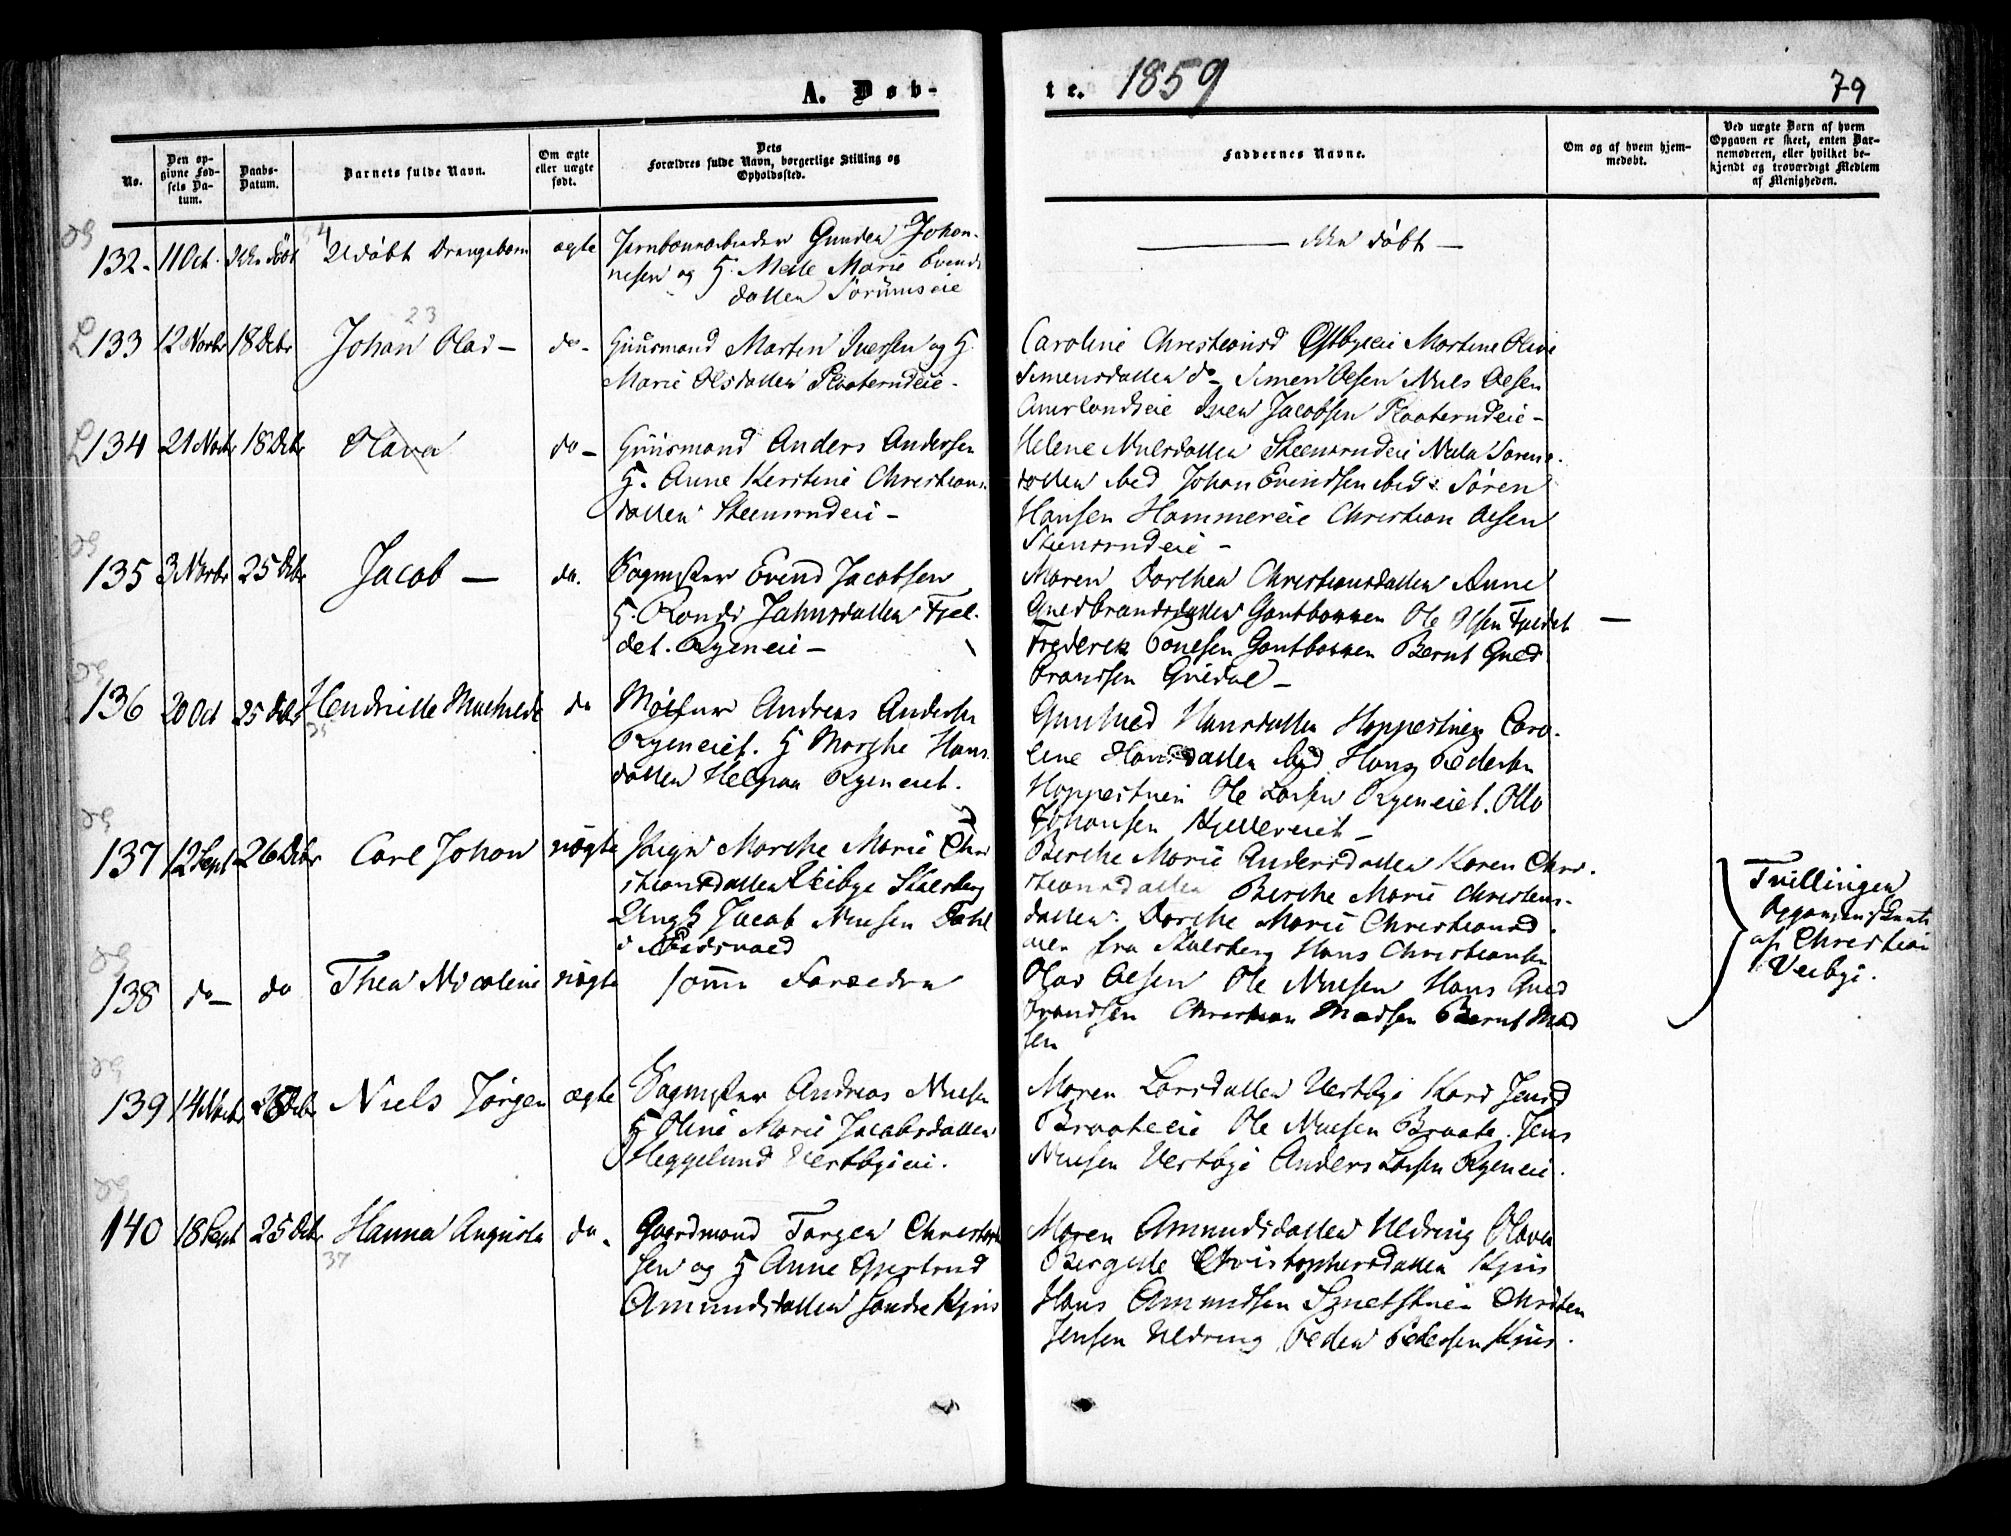 A. Døb-
te. 1859
79
No.
Den op-
givne Fød-
sels Da-
tum.
Daabs-
Datum.
Barnets fulde Navn.
Om ægte
eller uægte
født.
Dets
Forældres fulde Navn, borgerlige Stilling og
Opholdssted.
Faddernes Navne.
Om og af hvem hjem-
medøbt.
Ved uægte Børn af hvem
Opgaven er skeet, enten Bar-
nemoderen, eller hvilket be-
kjendt og troværdigt Medlem
af Menigheden.
132. 11 Oct. Ikke Døbt Udøbt Drengebarn ægte Jernbanearbeider Gunder Johan-
nesen og H. Marie
datter Sørumseie
ikke døbt
23
133 12 Novbr 18 Debr Johan Olai do Huusmand Martin Iversen og H.
Marie Olsdatter Plaaterudeie
Caroline Christiansd Østbyeie Martine Olive
Simensdatter do Simen Olsen Niels Olsen
Aurlandseie Iver Jacobsen Plaaterudeie
134 21 Novbr 18 Debr Olava do Huusmand Anders Andersen
H. Anne Kerstine Christians-
datter Steensrudeie
Helene Nielsdatter Steensrudeie Sørens-
datter ibid Johan Evindsen ibid Søren
Hansen Hammereie Christian Olsen
Steensrudeie
135 3 Novbr 25 Debr Jacob do. Sagmester Evend Jacobsen
H. Jahnsdatter Fjel-
det. Ryeneie
Maren Dorthea Christiansdatter Anne
Guldbrandsdatter Gantbakken Ole Olsen Fjeldet
Frederik Gantbakken Bernt Guld-
brandsen
136 20 Oct 25 Debr Mathilde do Møller Andreas Andersen
25
Ryeneiet. H Marthe Hans-
datter Ryeneiet.
Gunhild Hansdatter Hoppestuen Caro-
line Hansdatter ibid Hans Pedersen
Hoppestuen Ole Larsen Ryeneiet. Otto
Johansen
137 12 Sept 26 Debr Carl Johan uægte Pigen Marthe Marie Chri
stiansdatter Veibye Skulsberg
Ungk Jacob Nielsen Dahl
i Eidsvold
Berthe Marie Andersdatter Karen Chri-
stiansdatter Berthe Marie Christens-
datter Dorthe Marie Christiansd
fra Hans Christiansen
Tvillinger
af Christian
Veibye.
138 do do Thea Nicoline uægte samme Forældre
Olav Olsen Ole Nielsen Hans Guld
brandsen Christian Madsen Bernt Mad
sen
139 14 Novbr 26 Debr Niels Jørgen ægte Sagmester Andreas Nielsen
H Oline Marie Jacobsdatter
Heggelund Vestbyeie.
Maren Larsdatter Vestbye Kari Jensd
Braateeie Ole Nielsen Braate. Jens
Nielsen Vestbye Anders Larsen Ryeneie.
140 18 Sept 25 Debr Hanna Augusta do. Gaardmand Torger
37
sen og H Anne Gjertrud
Amundsdatter Søndre Kjus
Maren Amundsdatter Uldring Olava
Bergitte Christophersdatter Kjus
Hans Amundsen Christen
Jensen Uldring Peder Pedersen Kjus.